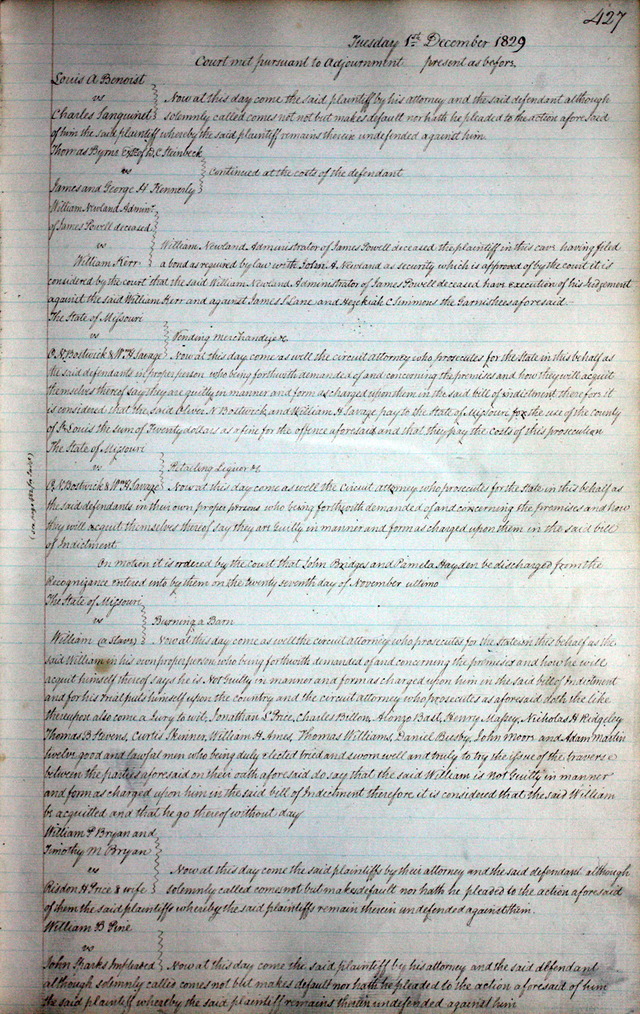 427
Tuesday 1st December 1829
Court met pursuant to Adjournment present as before.
Louis A Benoist
vs
Now at this day come the said plaintiff by his attorney and the said defendant although
Charles Sanguinet solemnly called comes not but makes default nor hath he pleaded to the action aforesaid
of him the said plaintiff whereby the said plaintiff remains therein undefended against him
Thomas Byrne Exr of C Steinbeck
vs continued at the costs of the defendant
James and George H Kennerly
William Newland Adminr
of James Powell deceased
vs William Newland Administrator of James Powell deceased the plaintiff in this case having filed
William Kerr a bond as required by law with John A Newland as security which is approved of by the court it is
considered by the court that the said William Newland Administrator of James Powell deceased have execution of his Judgement
against the said William Kerr and against James S Lane and Hezekiah C Simmons the Garnishees aforesaid
The State of Missouri
vs Vending merchandize &c
O. N. Bostwick & Wm H Savage Now at this day come as well the circuit attorney who prosecutes for the State in this behalf as
the said defendants in proper person who being forthwith demanded of and concerning the premises and how they will acquit
themselves thereof say they are guilty in manner and form as charged upon them in the said bill of indictment therefore it
is considered that the said Oliver N Bostwick and William H Savage pay to the State of Missouri for the use of the County
of St Louis the sum of Twenty dollars as a fine for the offence aforesaid and that they pay the costs of this prosecution
The State of Missouri
vs Retailing Liquor &c
O. N. Bostwick & Wm H Savage Now at this day come as well the Circuit attorney who prosecutes for the State in this behalf as
the said defendants in their own proper persons who being forthwith demanded of and concerning the premises and how
they will acquit themselves thereof say they are Guilty in manner and form as charged upon them in the said bill
of Indictment
On motion it is ordered by the court that John Bridges and Pamela Hayden be discharged from the
Recognizance entered into by them on the twenty seventh day of November ultimo
The State of Missouri
vs Burning a Barn
William (a slave) Now at this day come as well the circuit attorney who prosecutes for the State in this behalf as the
said William in his own proper person who being forthwith demanded of and concerning the premises and how he will
acquit himself thereof says he is Not Guilty in manner and form as charged upon him in the said bill of Indictment
and for his trial puts himself upon the country and the circuit attorney who prosecutes as aforesaid doth the like
thereupon also come a Jury to wit, Jonathan L Price, Charles Billon, Alonzo Bast, Henry Massey, Nicholas H Ridgeley
Thomas B Powens, Curtis Skinner, William H Ames, Thomas Williams, Daniel Busby, John Moor and Adam Martin
twelve good and lawful men who being duly elected tried and sworn well and truly to try the issue of the traverse
between the parties aforesaid on their oath aforesaid do say that the said William is Not Guilty in manner
and form as charged upon him in the said bill of Indictment therefore it is considered that the said William
be acquitted and that he go thereof without day
William P Bryan and
Timothy M Bryan
vs Now at this day come the said plaintiffs by their attorney and the said defendant although
Risdon H Price & wife solemnly called comes not but makes default nor hath he pleaded to the action aforesaid
of them the said plaintiffs whereby the said plaintiffs remain therein undefended against them.
William B Pine
vs
John Sparks Impleaded Now at this day come the said plaintiff by his attorney and the said defendant
although solemnly called comes not but makes default nor hath he pleaded to the action aforesaid of him
the said plaintiff whereby the said plaintiff remains therein undefended against him